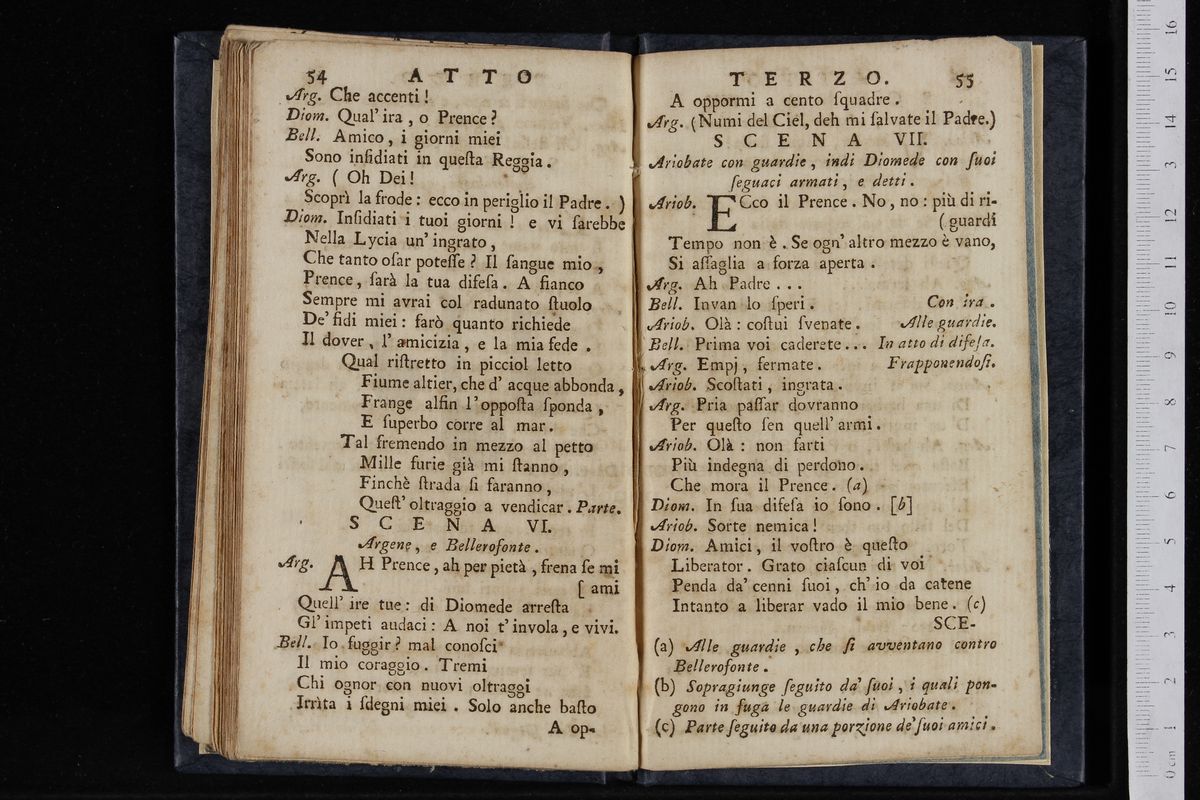 54 ATTO
Arg. Che accenti!
Diom. Qual' ira, o Prence?
Bell. Amico, i giorni miei
Sono insidiati in questa Reggia.
Arg. ( Oh Dei!
Scoprì la frode: ecco in periglio il Padre. )
Diom. Insidiati i tuoi giorni! e vi sarebbe
Nella Lycia un' ingrato,
Che tanto osar potesse? Il sangue mio,
Prence, sarà la tua difesa. A fianco
Sempre mi avrai col radunato stuolo
De' fidi miei: farò quanto richiede
Il dover, l' amicizia, e la mia fede.
Qual ristretto in picciol letto
Fiume altier, che d' acque abbonda,
Frange alfin l' opposta sponda,
E superbo corre al mar.
Tal fremendo in mezzo al petto
Mille furie già mi stanno,
Finchè strada si faranno,
Quest' oltraggio a vendicar. Parte.
SCENA VI.
Argene, e Bellerofonte.
Arg. AH Prence, ah per pietà, frena se mi
[ ami
Quell' ire tue: di Diomede arresta
Gl' impeti audaci: A noi t' invola, e vivi.
Bell. Io fuggir? mal conosci
Il mio coraggio. Tremi
Chi ognor con nuovi oltraggi
Irrita i sdegni miei. Solo anche basto
A op-
TERZO. 55
A oppormi a cento squadre.
Arg. (Numi del Ciel, deh mi salvate il Padre.)
SCENA VII.
Ariobate con guardie, indi Diomede con suoi
seguaci armati, e detti.
Ariob. ECco il Prence. No, no: più di ri-
( guardi
Tempo non è. Se ogn' altro mezzo è vano,
Si assaglia a forza aperta.
Arg. Ah Padre...
Bell. Invan lo speri. Con ira.
Ariob. Olà: costui svenate. Alle guardie.
Bell. Prima voi caderete... In atto di difesa.
Arg. Empj, fermate. Frapponendosi.
Ariob. Scostati, ingrata.
Arg. Pria passar dovranno
Per questo sen quell' armi.
Ariob. Olà: non farti
Più indegna di perdono.
Che mora il Prence. (a)
Diom. In sua difesa io sono. [b]
Ariob. Sorte nemica!
Diom. Amici, il vostro è questo
Liberator. Grato ciascun di voi
Penda da' cenni suoi, ch' io da catene
Intanto a liberar vado il mio bene. (c)
SCE-
(a) Alle guardie, che si avventano contro
Bellerofonte.
(b) Sopragiunge seguito da' suoi, i quali pon-
gono in fuga le guardie di Ariobate.
(c) Parte seguito da una porzione de' suoi amici.
0 cm 1 2 3 4 5 6 7 8 9 10 11 12 13 14 15 16